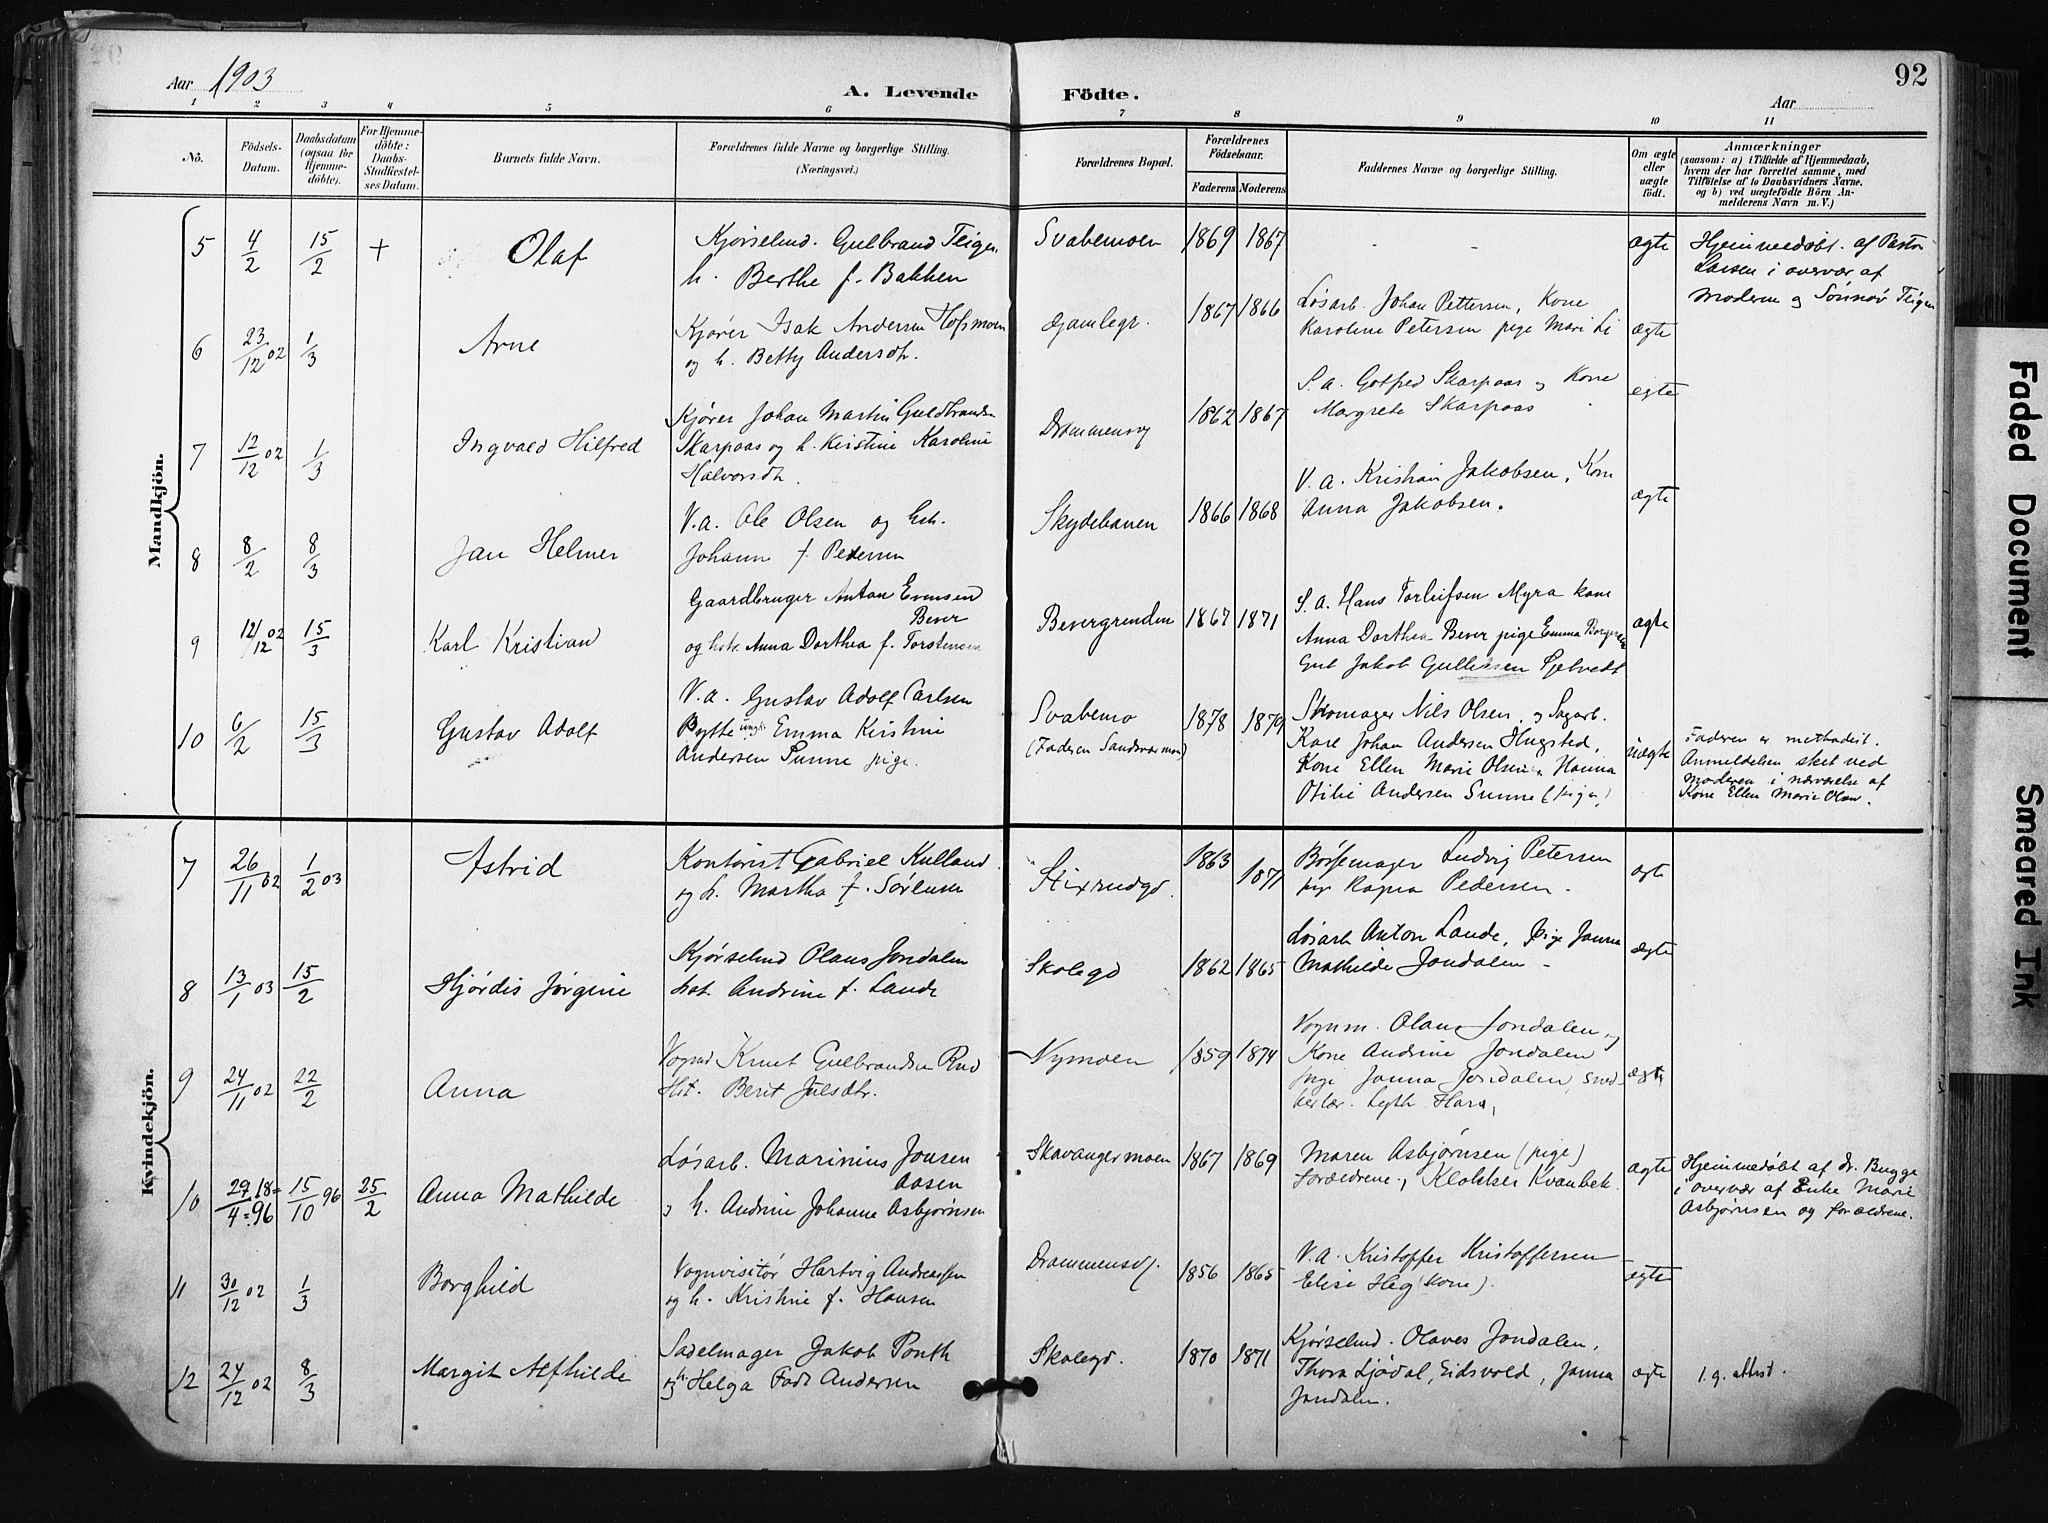 Aar 1903
A. Levende Födte.
92
Aar
1 2 3 4 5 6 7 8 9 10 11
No.
Födsels-Datum.
Daabsdatum (ogsaa for Hjemme-döbte).
For Hjemme-döbte: Daabs-Stadfæstel-ses Datum.
Barnets fulde Navn.
Forældrenes fulde Navne og borgerlige Stilling. (Næringsvei.)
Forældrenes Bopæl.
Forældrenes Födselsaar.
Faderens Moderens
Faddernes Navne og borgerlige Stilling.
Om ægte eller uægte födt.
Anmærkninger
(saasom: a) i Tilfælde af Hjemmedaab, hvem der har forrettet samme, med Tilföielse af to Daabsvidners Navne, og b) ved uægtefödte Börn An-melderens Navn m. V.)
Mandkjön.
5 4/2 15/2 + Olaf
Kjørselmd. Gulbrand Teigen
h. Berthe f. Bakken
Svabemoen 1869 1867 - - ægte
Hjemmedøbt af Pastor
Larsen i overvær af
Moderen og Sønnøv Teigen
6 23/12 02 1/3 Arne
Kjører Isak Andersen Hofsmoen
og h. Betty Andersdtr.
Gamlegr. 1867 1866
Løsarb. Johan Pettersen, Kone
Karoline Petersen pige Mari Li
ægte
7 12/12 02 1/3 Ingvald Hilfred
Kjører Johan Martin Guldbrandsen
Skarpaas og h. Kirstine Karoline
Halvorsdtr.
Drammensv 1862 1867
S. a. Gotfred Skarpaas og Kone
Margrete Skarpaas
egte
8 8/2 8/3 Jan Helmer
V. a. Ole Olsen og hst.
Johann f. Pedersen
Skydebanen 1866 1868
V. a. Kristian Jakobsen, Kone
Anna Jakobsen.
ægte
9 12/12 02 15/3 Karl Kristian
Gaardbruger Anton Evensen
Bever
og hstr. Anna Dorthea f. Torstensen
Bevergrenden 1867 1871
S. a. Hans Torleifsen Myra kone
Anna Dorthea Bever pige Emma
Gut Jakob Gulliksen
ægte
10 6/2 15/3 Gustav Adolf
V. a. Gustav Adolf Carlsen
Bytte ungk. Emma Kirstine
Andersen Sunne pige.
Svabemo
(Faderen Sandsværmoen)
1878 1879
Skomager Nils Olsen, og Sagarb.
Karl Johan Andersen Hugsted,
Kone Ellen Marie Olsen Hanna
Otilie Andersen Sunne (pige)
uægte
Faderen er methodist.
Anmeldelsen sket ved
Moderen i nærværelse af
Kone Ellen Marie Olsen.
Kvindekjön.
7 26/11 02 1/2 03 Astrid
Kontorist Gabriel Kulland
og h. Martha f. Sørensen
Stixrudgd. 1863 1871
Børsemager Ludvig Petersen
pige Ragna Pedersen -
ægte
8 13/1 03 15/2 Hjørdis Jørgine
Kjørselmd Olaus Jondalen
hst. Andrine f. Lande
Skolegd 1862 1865
Løsarb Anton Lande, pige Janna
Mathilde Jondalen -
ægte
9 24/11 02 22/2 Anna
Vognmd Knut Gulbrandsen Rud
Hst. Berit Julsdtr.
Nymoen 1859 1874
Vognm. Olaus Jondalen, og
Kone Andrine Jondalen
pige Janna Jondalen, Sned-
kerlær.
ægte
10 29/4 18=96 15/10 96 25/2 Anna Mathilde
Løsarb. Marinius Jonsen
Aasen
og h. Andrine Johanne Asbjørnsen
Skavangermoen 1867 1869
Maren Asbjørnsen (pige)
Forældrene, Klokker Kvanbek
ægte
Hjemmedøbt af dr. Bugge
i overvær af Enke Marie
Asbjørnsen og forældrene.
11 30/12 02 1/3 Borghild
Vognvisitør Hartvig Andreassen
og h. Kristine f. Hansen
Drammensv. 1856 1865
V. a. Kristoffer Kristoffersen
Elise Heg (kone).
egte
12 24/12 02 8/3 Margit Alfhilde
Sadelmager Jakob Ponth
og h. Helga Andersen
Skolegd. 1870 1871
Kjørselmd. Olaves Jondalen,
Thora Ljødal, Eidsvold, Janna
Jondalen.
ægte
1. 9. attest.
Faded Document
Smeared Ink